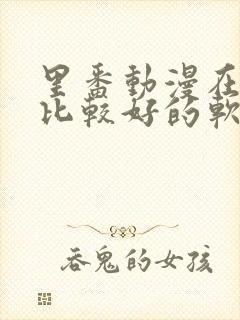 里番動漫在
比較好的軟
吞鬼的女孩